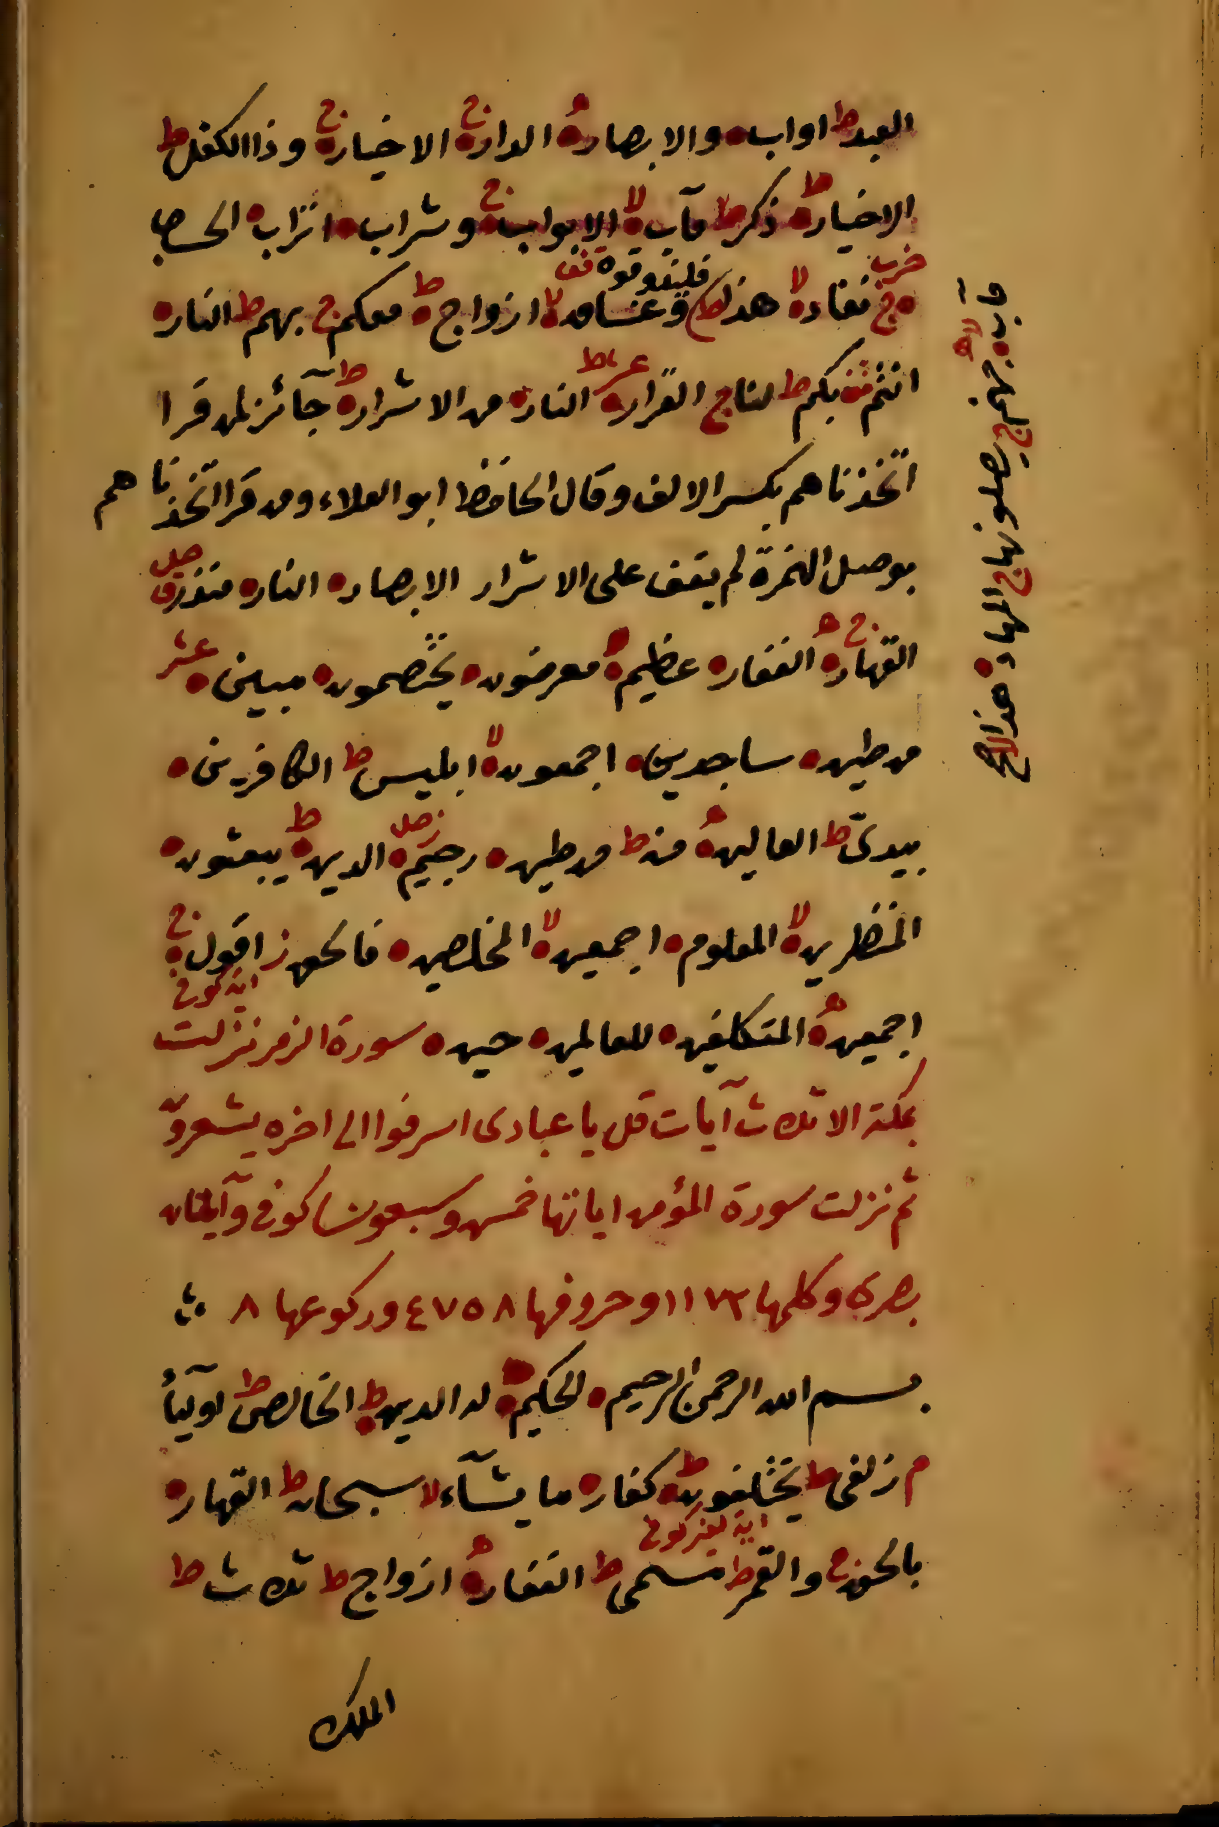 العبد ط اواب ه والابصار ه الدار ج الاخيار ج وذا الكفل ط
الاخيار ط ذكر ط مآب لا الابواب ج وشراب ه اتراب ه الحساب
ج نفاد لا هذا ط فليذوقوه قف وغساق لا ازواج ط معكم ج بهم ط النار ه
انتم قف بكم ط لنا ج القرار ه عشر ط النار ه من الاشرار ط جآئز لمن قرا
اتخذناهم بكسر الالف وقال الحافظ ابو العلاء ومن قرا اتخذناهم
بوصل الهمزة لم يقف على الاشرار الابصار ه النار ه منذر ق صلى
القهار ج الغفار ه عظيم ه معرضون ه يختصمون ه مبين ه عشر
من طين ه ساجدين ه اجمعون لا ابليس ط الكافرين ه
بيدى ط العالين ه منه ط من طين ه رجيم ه الدين ط يبعثون ه
المنظرين لا المعلوم ه اجمعين لا المخلصين ه فالحق ز اقول ج
اية كوفى
اجمعين ه المتكلفين ه للعالمين ه حين ه سورة الزمر نزلت
بمكة الا ثلاث آيات قل يا عبادى اسرفوا الى اخره يشعرون
ثم نزلت سورة المؤمن اياتها خمس وسبعون كوفى وآيتان
بصرى وكلمها ١١٧٢ وحروفها ٤٧٥٨ وركوعها ٨
بسم الله الرحمن الرحيم ه الحكيم ه له الدين ط الخالص ط اوليآء
م زلفى ط يختلفون ط كفار ه ما يشآء لا سبحانه ط القهار ه
بالحق ج والقمر ط مسمى ط الغفار ه ازواج ط ثلاث ط
الملك
مآب لا جهنم ج يصلونها ج المهاد ه هذا لا